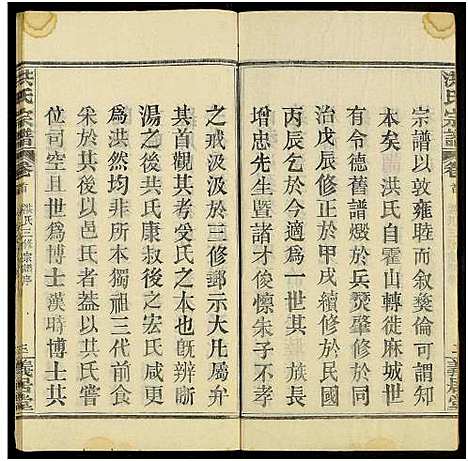 洪氏宗譜
卷首
二
義居堂
宗譜以敦雍睦而叙彝倫可謂知
本矣 洪氏自霍山轉徙麻城世
有令德舊譜燬於兵燹肇修於同
治戊辰修正於甲戌續修於民國
丙辰乞於今適為一世其
增忠先生暨諸才俊懍朱子不孝
之戒汲汲於三修鄉示大凡屬弁
其首觀其考受氏之始既辨斷
湯之後共氏康叔後之宏氏咸更
為洪然均非所本獨祖三代前食
采於共邑者蓋以共氏嘗
位司空且世為博士漢時博士其
洪氏宗譜
卷首
洪氏三修宗譜序
三
義居堂